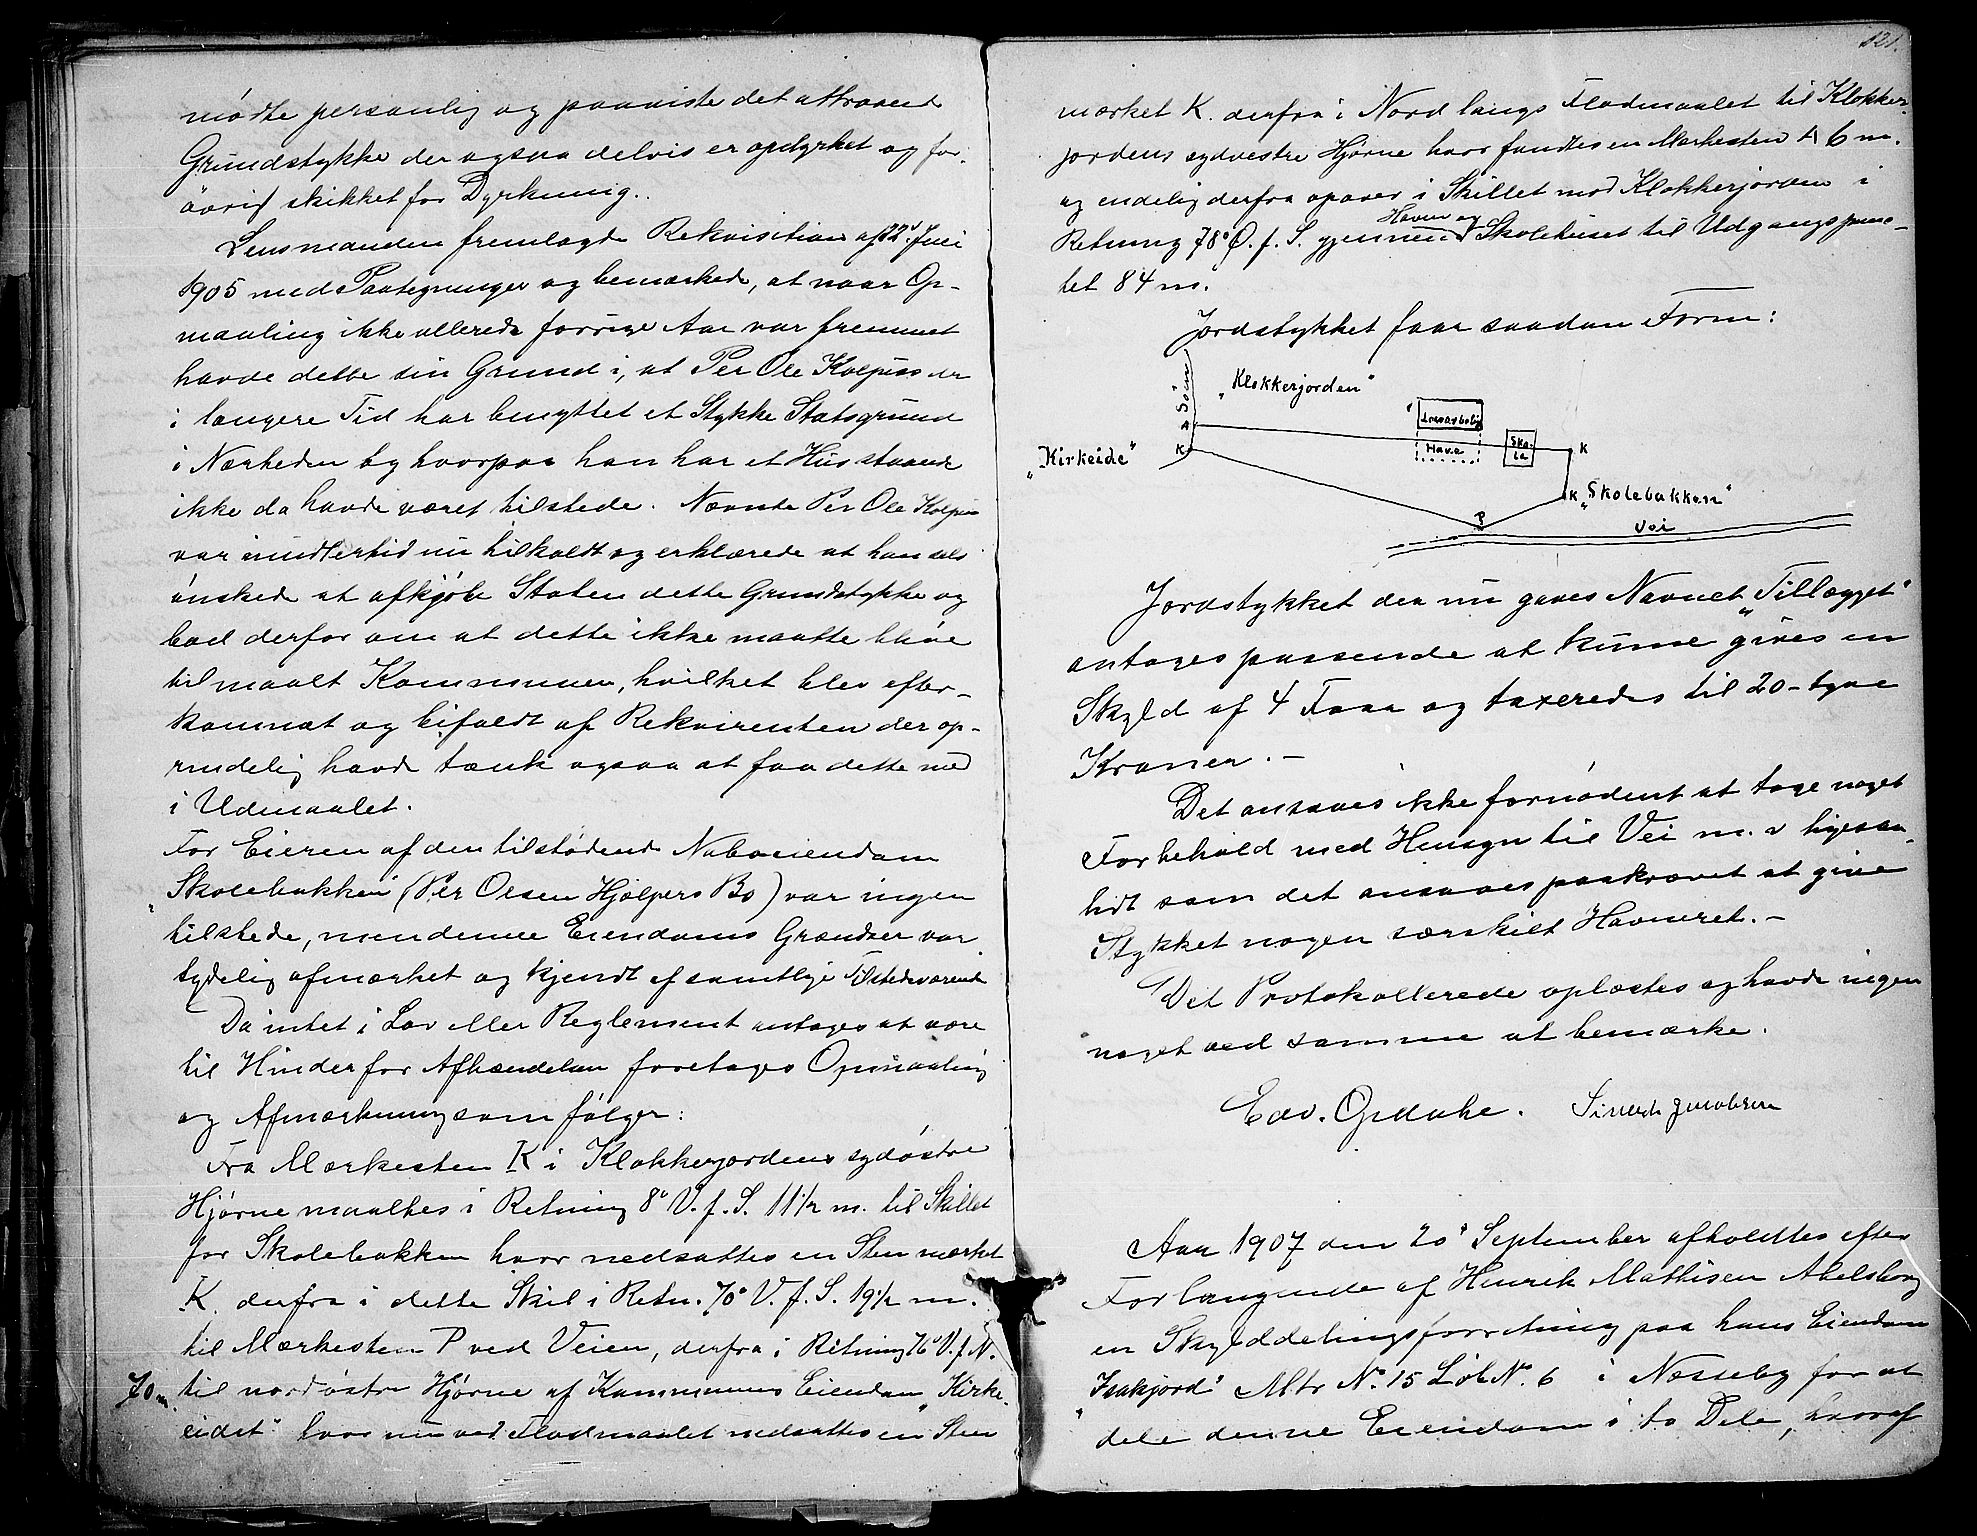 mødte personlig og paaviste det attraaede
Grundstykke der ogsaa delvis er opdyrket og for-
øvrigt skikket for Dyrkning.
Lensmanden fremlagde Rekvisition af 22' Juli
1905 med Paategninger og bemærkede, at naar Op-
maaling ikke allerede forrige Aar var fremmet
havde dette sin Grund i, at Per Ole Kolpus der
i længere Tid har benyttet et Stykke Statsgrund
i Nærheden og hvorpaa han har et Hus staaende
ikke da havde været tilstede. Nævnte Per Ole Kolpus
var imidlertid nu tilkaldt og erklærede at han selv
ønskede at afkjøbe Staten dette Grundstykke og
bad derfor om at dette ikke maatte blive
tilmaalt Kommunen, hvilket blev efter-
kommet og bifaldt af Rekvirenten der op-
rindelig havde tænk ogsaa at faa dette med
i Udmaalet.
For Eieren af den tilstødende Naboeiendom
„Skolebakken" (Per Olsen Hjelpers Bo) var ingen
tilstede, men denne Eiendoms Grændser var
tydelig afmærket og kjendt af samtlige Tilstedeværende
Da intet i Lov eller Reglement antages at være
til Hinder for Afhændelsen foretages Opmaaling
og Afmærkning som følger:
Fra Mærkesten K i Klokkerjordens sydøstre
Hjørne maaltes i Retning 8° V. f. S. 11½ m. til Skillet
for Skolebakken hvor nedsattes en Sten mærket
K. derfra i dette Skil i Retn. 70° V. f. S. 19½ m.
til Mærkesten P ved Veien, derfra i Retning 76° V. f. N.
70 m. til nordøstre Hjørne af Kommunens Eiendom „Kirke-
eidet" hvor nu ved Flodmaalet nedsattes en Sten
121.
mærket K. derfra i Nord langs Flodmaalet til Klokker-
jordens sydvestre Hjørne hvor fandtes en Mærkesten A 6 m.
og endelig derfra opover i Skillet mod Klokkerjorden i
Retning 78° Ø. f. S. gjennem Haven og Skolehuset til Udgangspunk-
tet 84 m.
Jordstykket faar saadan Form:
Søen
„Klokkerjorden"
Have
Sko-
le
A
K
K
„Kirkeide"
K „Skolebakken"
P
Vei
Jordstykket der nu gaves Navnet „Tillægget"
antages passende at kunne gives en
Skyld af 4 Føre og taxeredes til 20 - tyve
Kroner. -
Det ansaaes ikke fornødent at tage noget
Forbehold med Hensyn til Vei m. v ligesaa
lidt som det ansaaes paakrævet at give
Stykket nogen særskilt Havneret. -
Det Protokollerede oplæstes og havde ingen
noget ved samme at bemærke.
Edv. Opdahl.
Aar 1907 den 20' September afholdtes efter
Forlangende af Henrik Mathisen Abelsborg
en Skylddelingsforretning paa hans Eiendom
„Isakjord" Mtr No. 15 Løb No. 6 i Næsseby for at
dele denne Eiendom i to Dele, hvoraf